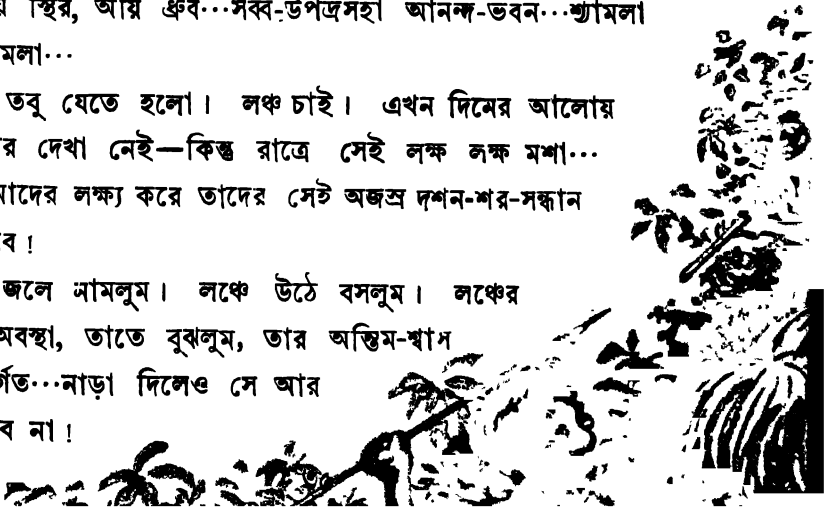 স্থির, আয় ধ্রুব···সর্ব্ব-উপদ্রসহা আনন্দ-ভবন···শ্যামলা
মলা···
তবু যেতে হলো। লঞ্চ চাই। এখন দিনের আলোয়
র দেখা নেই—কিন্তু রাত্রে সেই লক্ষ লক্ষ মশা···
মাদের লক্ষ্য করে তাদের সেই অজস্র দশন-শর-সন্ধান
বে!
জলে নামলুম। লঞ্চে উঠে বসলুম। লঞ্চের
অবস্থা, তাতে বুঝলুম, তার অন্তিম-শ্বাস
র্গত···নাড়া দিলেও সে আর
ব না!